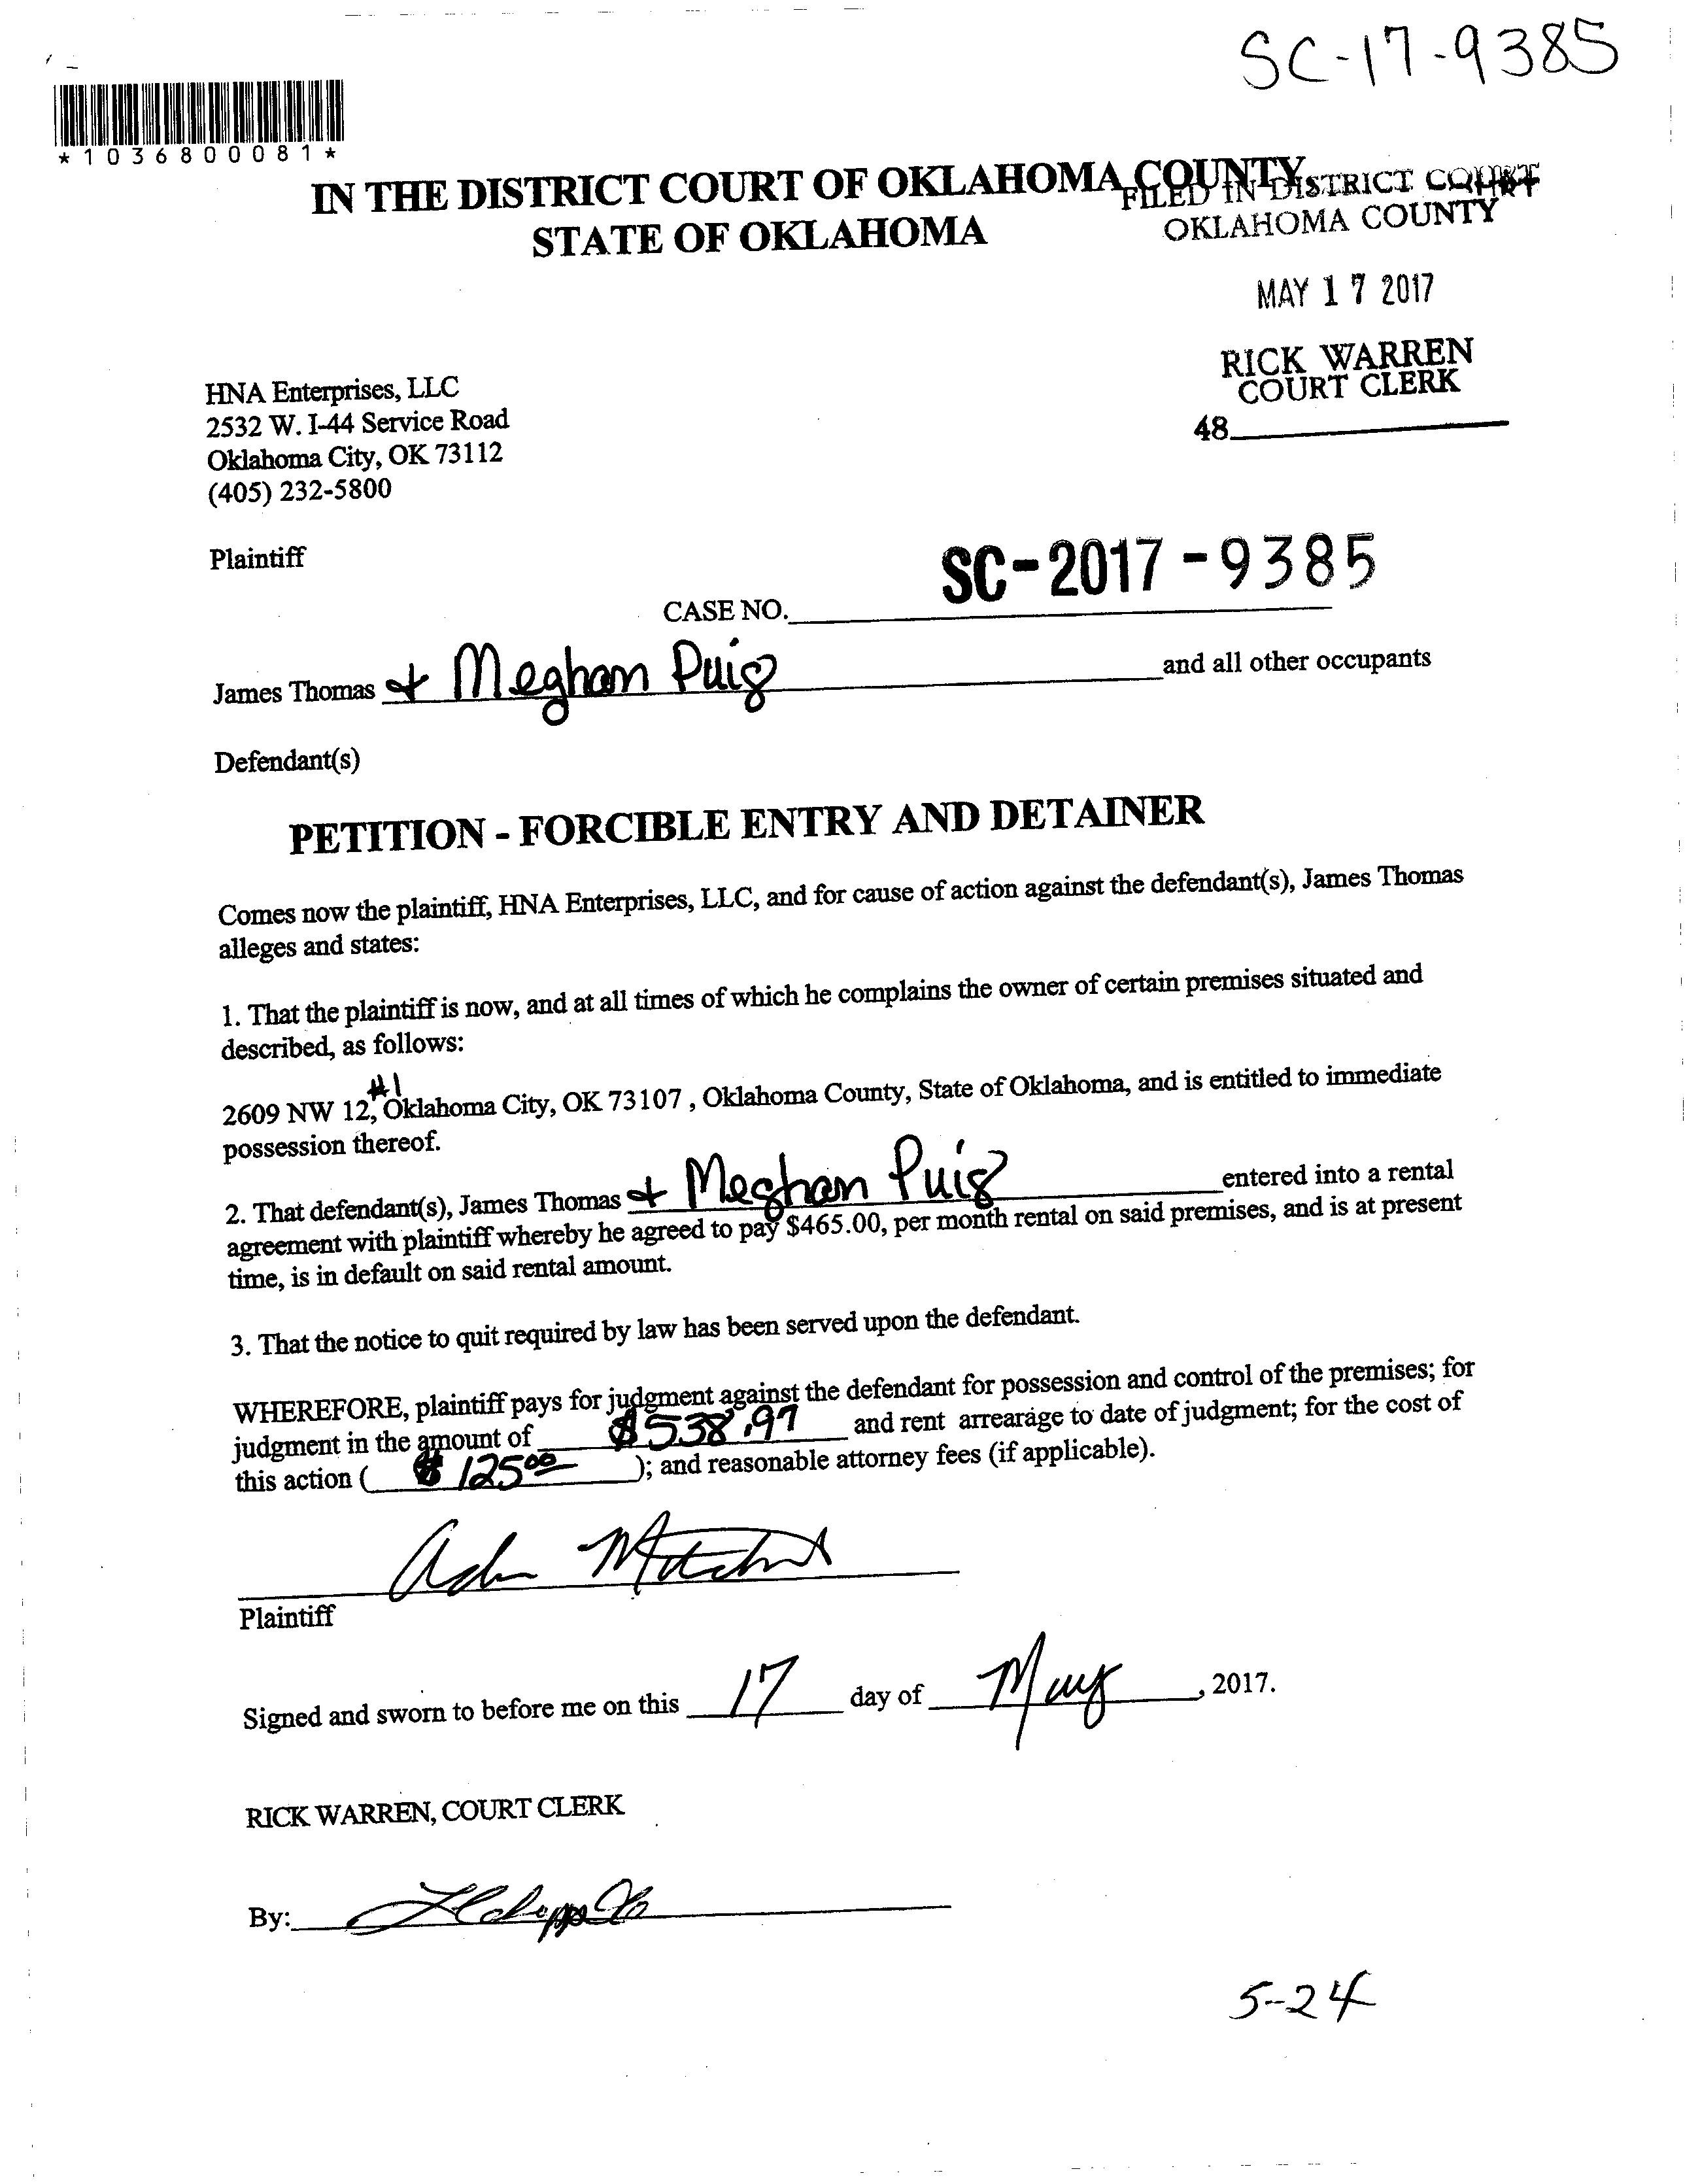 SC-17-9385
*1036800081*
IN THE DISTRICT COURT OF OKLAHOMA COUNTY
STATE OF OKLAHOMA
FILED IN DISTRICT COURT
OKLAHOMA COUNTY
MAY 17 2017
RICK WARREN
COURT CLERK
48
HNA Enterprises, LLC
2532 W. I-44 Service Road
Oklahoma City, OK 73112
(405) 232-5800
Plaintiff
CASE NO. SC-2017-9385
James Thomas + Meghan Puig and all other occupants
Defendant(s)
PETITION - FORCIBLE ENTRY AND DETAINER
Comes now the plaintiff, HNA Enterprises, LLC, and for cause of action against the defendant(s), James Thomas
alleges and states:
1. That the plaintiff is now, and at all times of which he complains the owner of certain premises situated and
described, as follows:
#1
2609 NW 12, Oklahoma City, OK 73107 , Oklahoma County, State of Oklahoma, and is entitled to immediate
possession thereof.
2. That defendant(s), James Thomas + Meghan Puig entered into a rental
agreement with plaintiff whereby he agreed to pay $465.00, per month rental on said premises, and is at present
time, is in default on said rental amount.
3. That the notice to quit required by law has been served upon the defendant.
WHEREFORE, plaintiff pays for judgment against the defendant for possession and control of the premises; for
judgment in the amount of $538.97 and rent arrearage to date of judgment; for the cost of
this action ( $125.00 ); and reasonable attorney fees (if applicable).
Plaintiff
Signed and sworn to before me on this 17 day of May, 2017.
RICK WARREN, COURT CLERK
By:
5-24